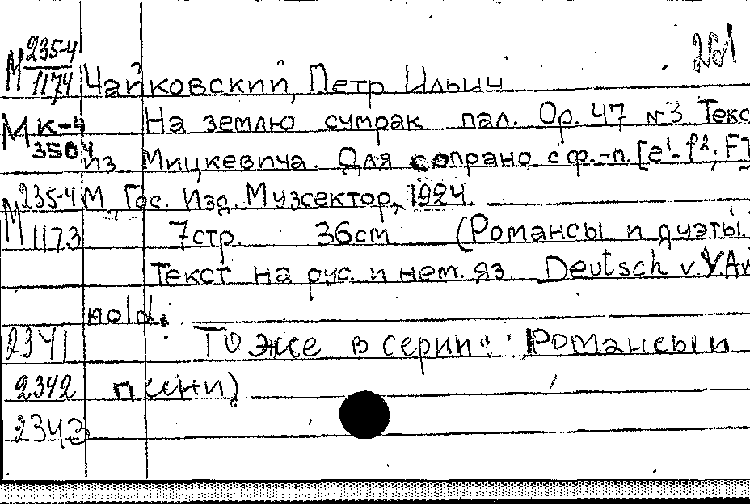 261
М 235-4/1174 Чайковский, Петр Ильич
М К-4 На землю сумрак пал. Ор. 47 №3 Текс
3504 из Мицкевича. Для сопрано с ф.-п. [e¹-f²; F]
М 235-4 М. Гос. Изд. Музсектор, 1924.
М 1173 7стр. 36см (Романсы и дуэты.
Текст на рус. и нем. яз Deutsch v. Y. Ar
nold.
2341 То же в серии: Романсы и
2342 песни)
2343